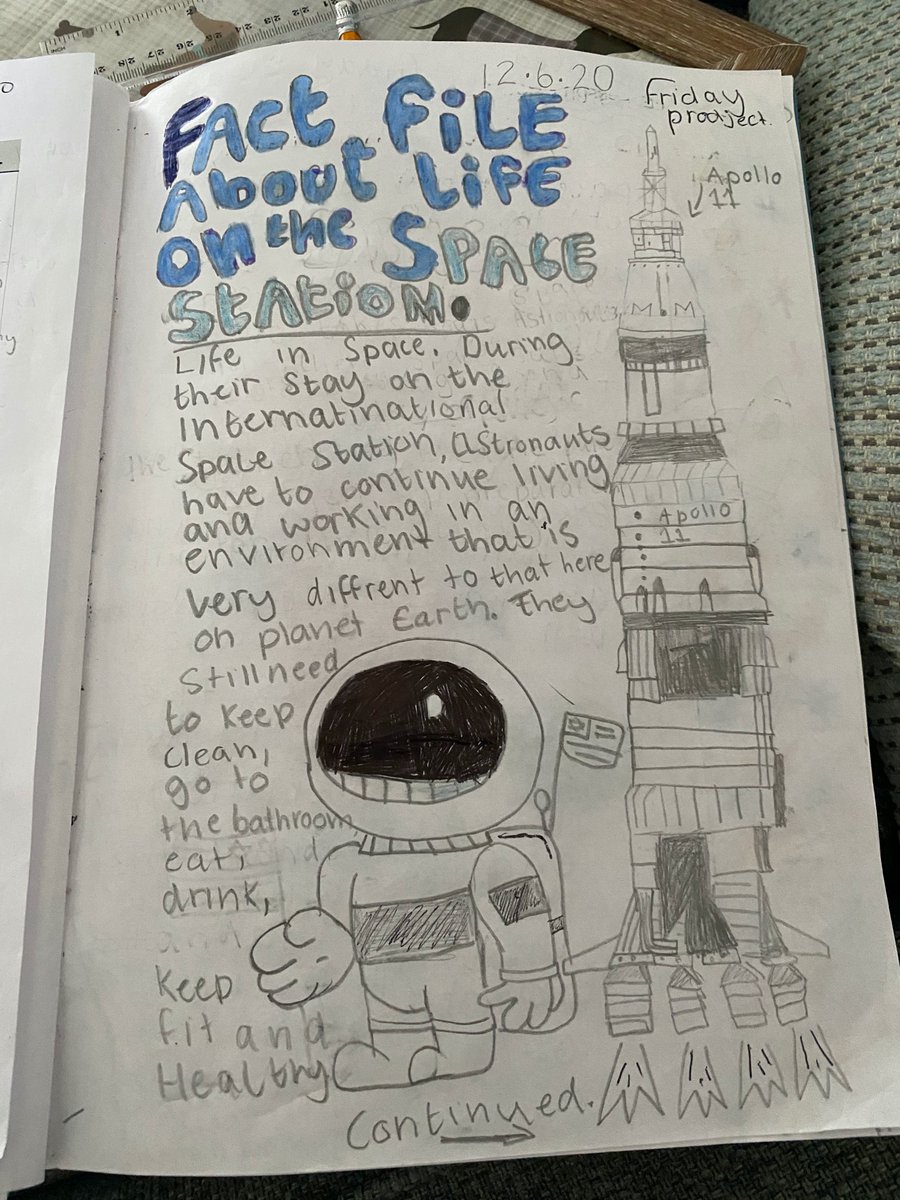 12.6.20
Friday
prodject.
FACT FILE
ABOUT LIFE
ON the SPACE
STATION.
Apollo
11
Life in Space. During
their stay on the
Internatinational
Space Station, astronauts
have to continue living
and working in an
environment that is
very diffrent to that here
on planet Earth. They
still need
to keep
clean,
go to
the bathroom
eat,
drink,
keep
fit and
Healthy
Apollo
11
Continued.